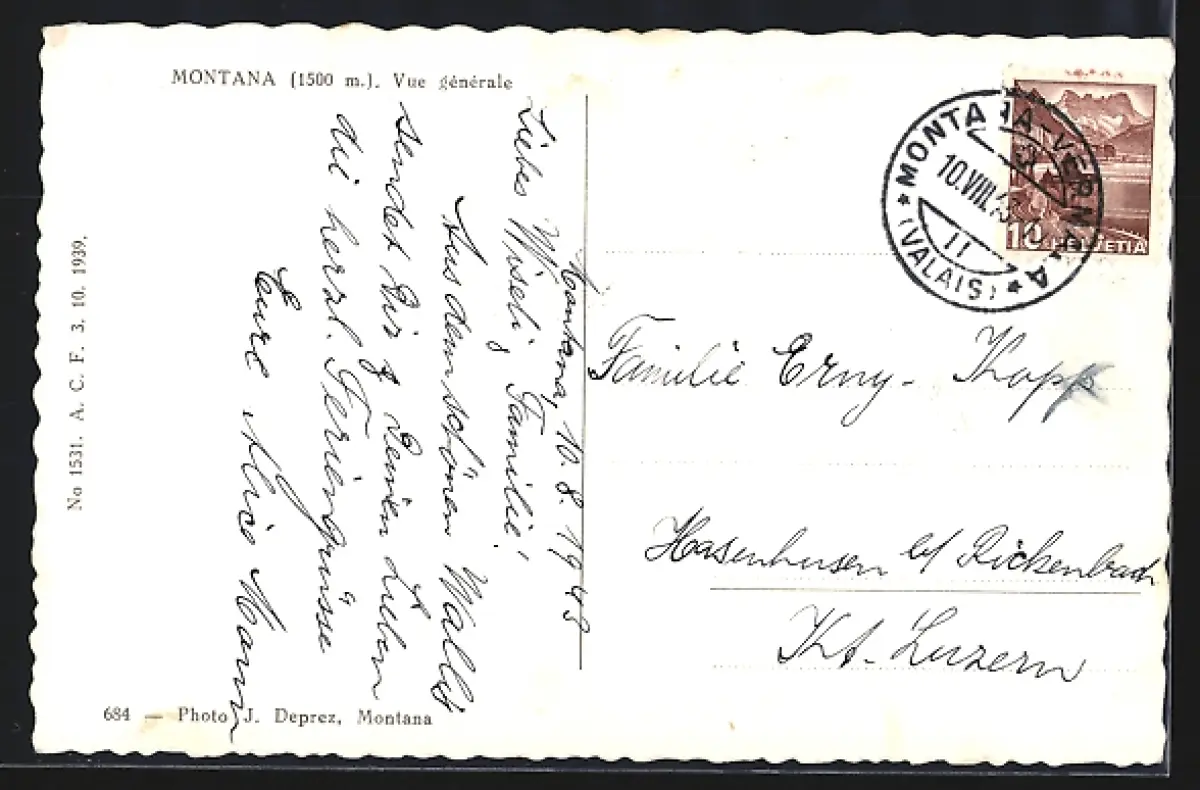 MONTANA (1500 m.). Vue générale
Montana, 10. 8. 1948
Liebes Wiseli, Familie!
Aus dem schönen Wallis
sendet Dir & Deinen Lieben
die herzl. Feriengrüsse
Eure Alice Mann
No 1531. A. C. F. 3. 10. 1939.
684 — Photo J. Deprez, Montana
MONTANA-VERMALA
10.VIII.48
11
(VALAIS)
10 HELVETIA
Familie Erny - Kopp
Hasenhusen b/ Rickenbach
Kt. Luzern